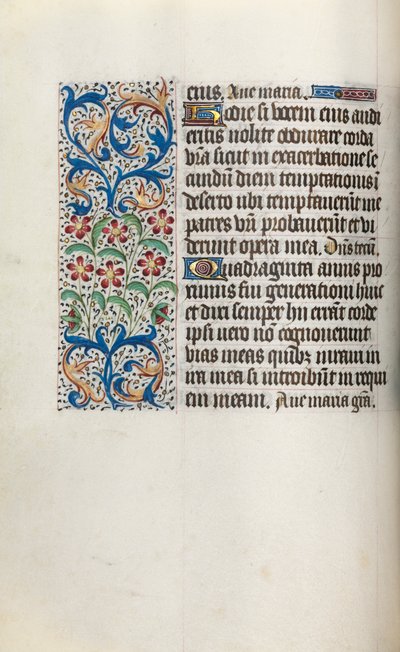 eius. Aue maria.
Hodie si vocem eius audi
eritis nolite obdurare corda
vr̄a sicut in exacerbatione se
cundū diem temptationis ī
deserto ubi temptauerūt me
patres vrī probauerūt et vi
derunt opera mea. Dn̄s tecū.
Quadraginta annis pro
ximus fui generationi huic
et dixi semper hii errāt corde
ipsi uero nō cognouerunt
vias meas quibꝫ iuraui in
ira mea si introibūt in requi
em meam. Aue maria gr̄a.